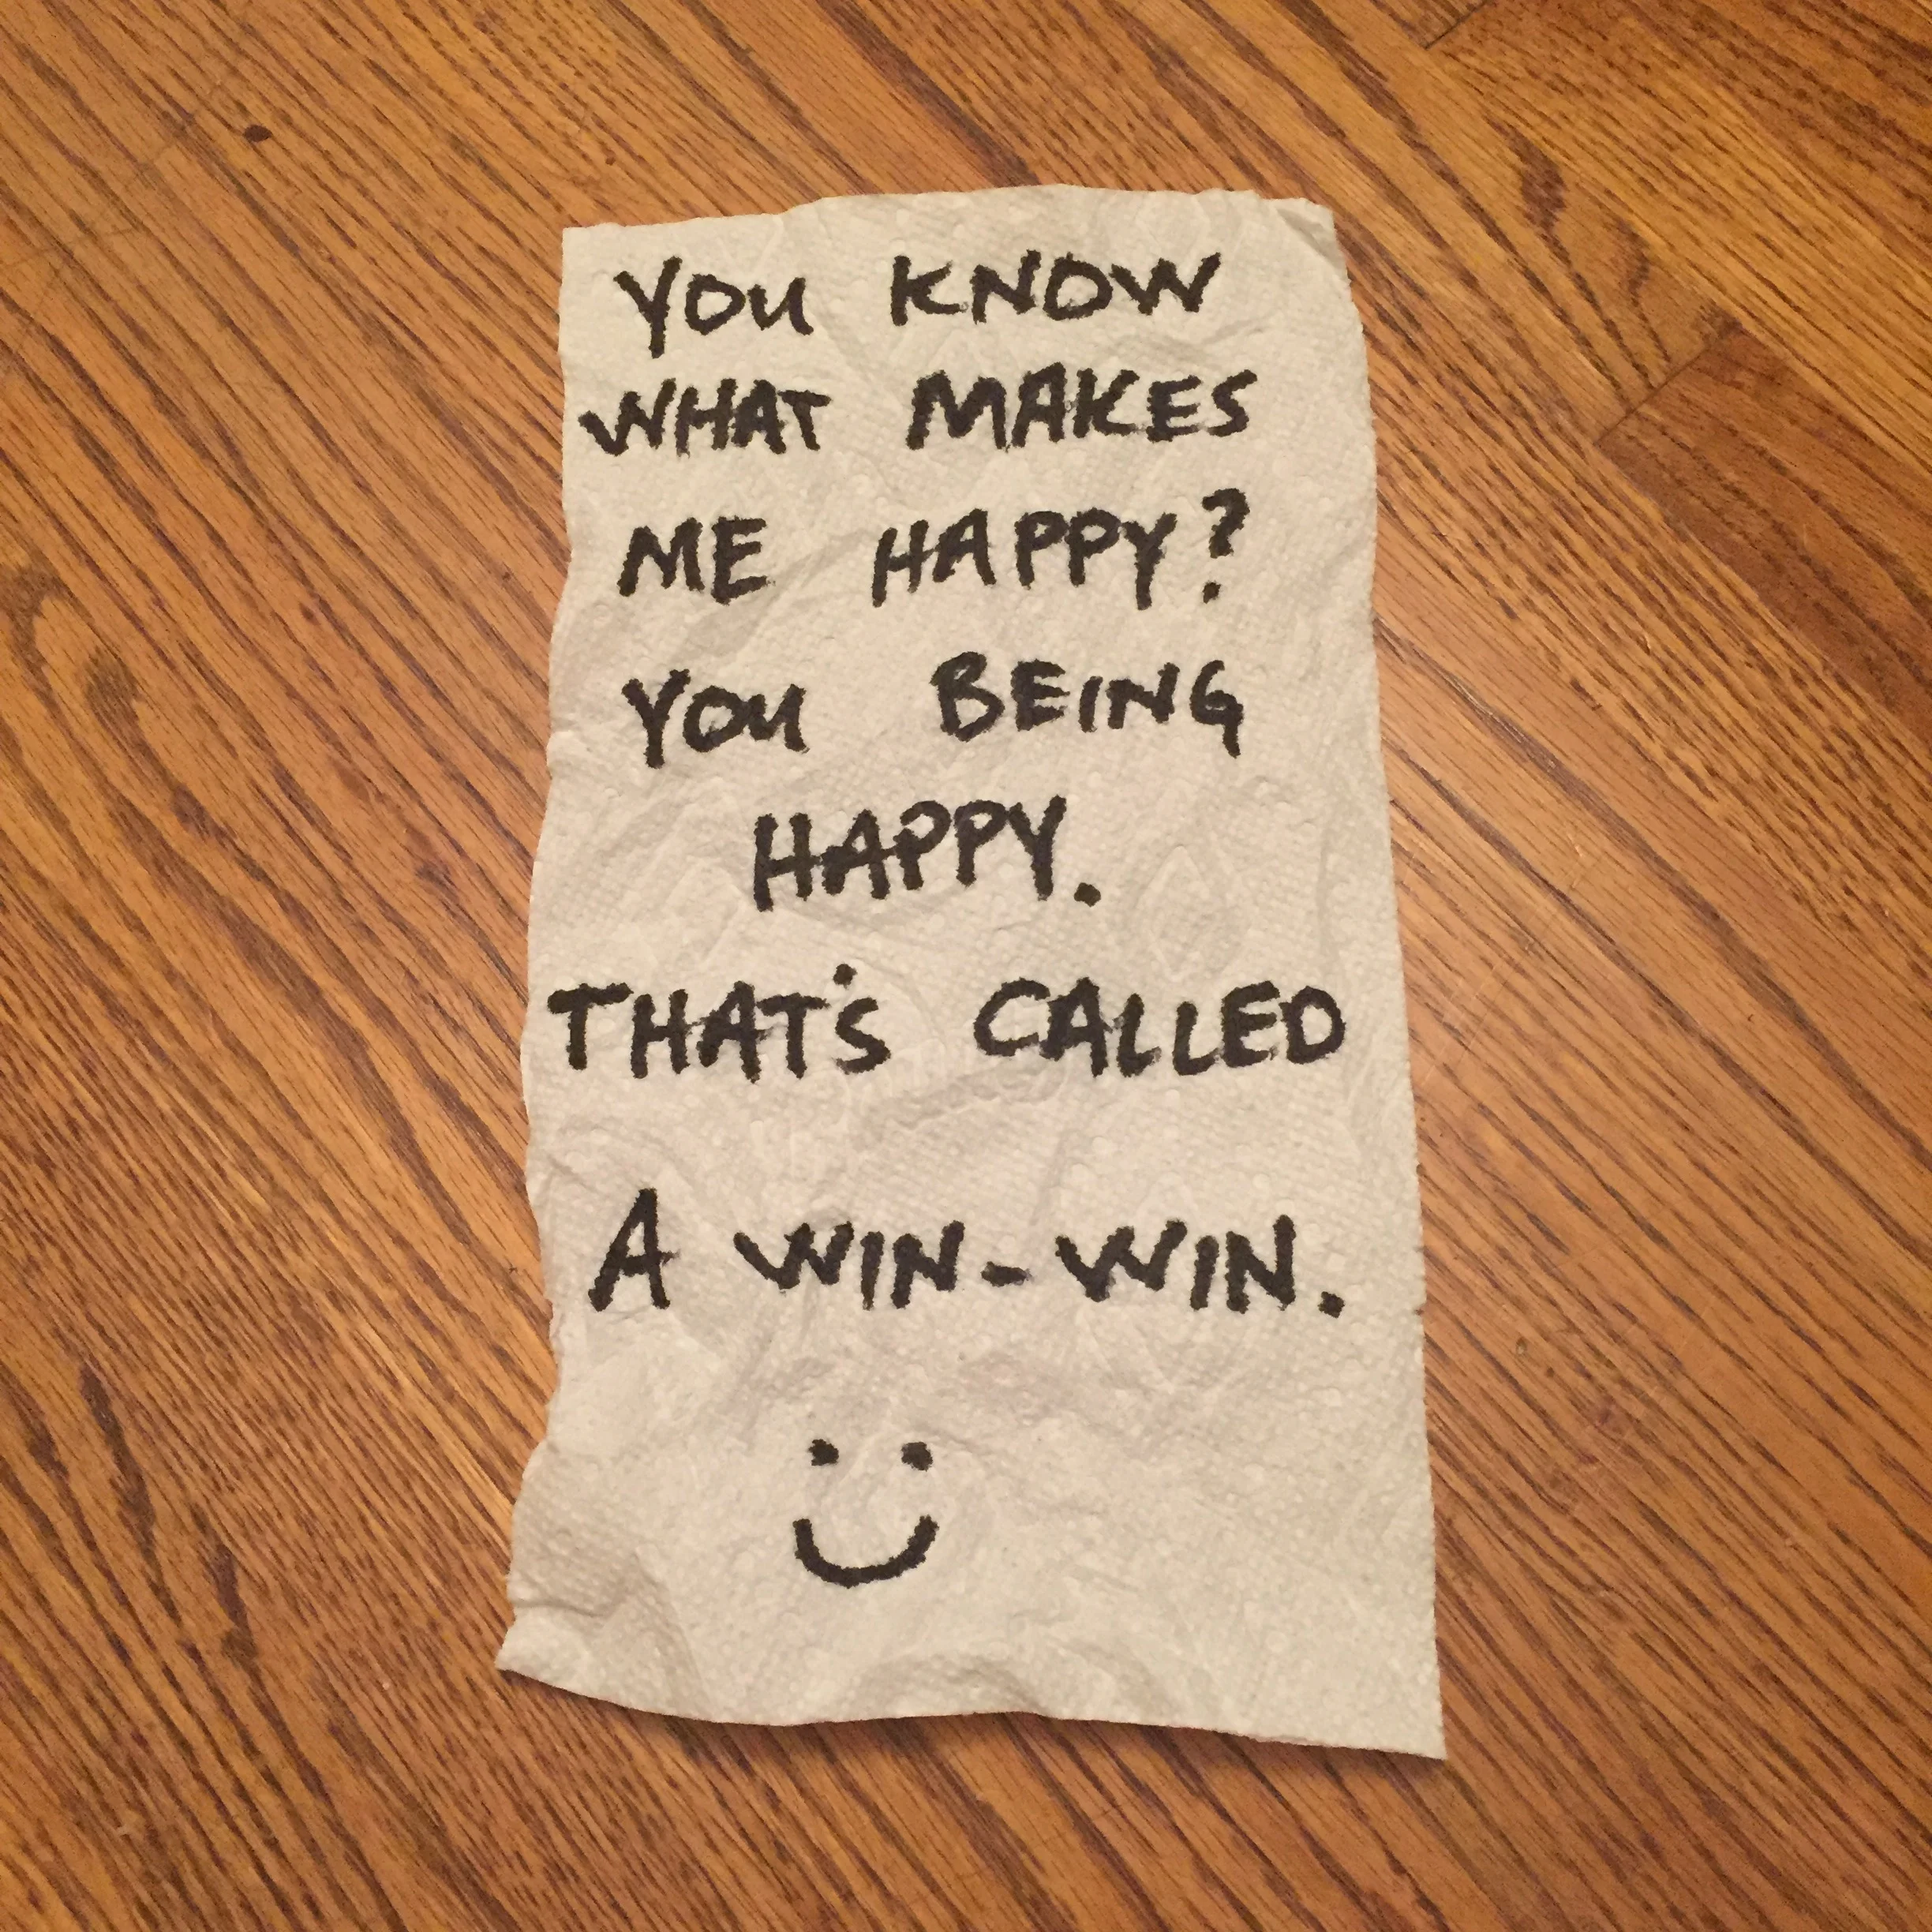 YOU KNOW
WHAT MAKES
ME HAPPY?
YOU BEING
HAPPY.
THAT'S CALLED
A WIN-WIN.